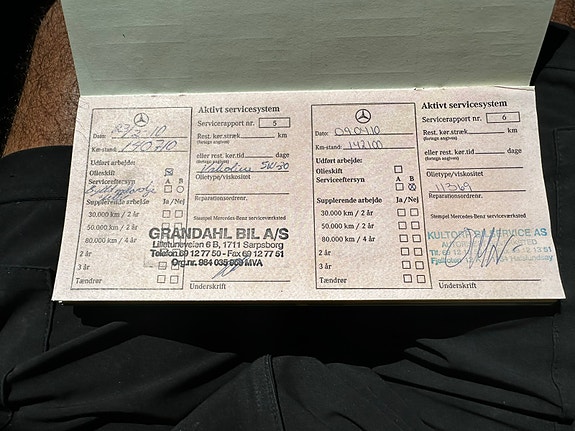 Aktivt servicesystem
Servicerapport nr. 5
Dato:
Km-stand: 140710
Rest. kør.stræk km
(fortøg angives)
eller rest. kør.tid dage
(fortøg angives)
Udført arbejde:
Olieskift
5W30
Olietype/viskositet
Serviceeftersyn A B
Reparationsordrenr.
Supplerende arbejde Ja/Nej
30.000 km / 2 år
Stempel Mercedes-Benz serviceværksted
50.000 km / 2 år
80.000 km / 4 år
2 år
3 år
Tændrør
GRANDAHL BIL A/S
Lilletuneveien 6 B, 1711 Sarpsborg
Telefon 69 12 77 50 - Fax 69 12 77 51
Org.nr. 984 035 969 MVA
Underskrift
Aktivt servicesystem
Servicerapport nr. 6
Dato: 09.04.10
Km-stand: 142100
Rest. kør.stræk km
(fortøg angives)
eller rest. kør.tid dage
(fortøg angives)
Udført arbejde:
Olieskift
Olietype/viskositet
Serviceeftersyn A B
11369
Reparationsordrenr.
Supplerende arbejde Ja/Nej
30.000 km / 2 år
Stempel Mercedes-Benz serviceværksted
50.000 km / 2 år
80.000 km / 4 år
2 år
3 år
Tændrør
SERVICE AS
Underskrift